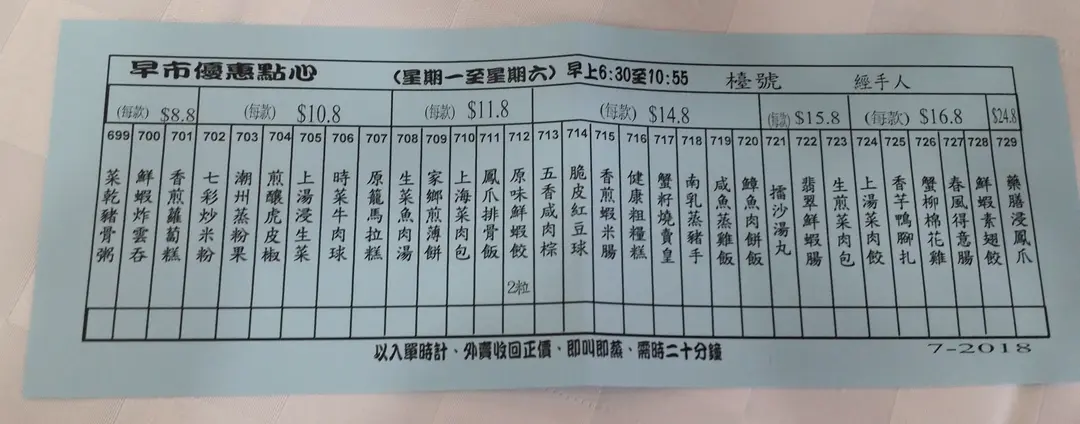 早市優惠點心 (星期一至星期六) 早上6:30至10:55 檯號 經手人
(每款) $8.8 (每款) $10.8 (每款) $11.8 (每款) $14.8 (每款) $15.8 (每款) $16.8 $24.8
699 700 701 702 703 704 705 706 707 708 709 710 711 712 713 714 715 716 717 718 719 720 721 722 723 724 725 726 727 728 729
菜乾豬骨粥
鮮蝦炸雲吞
香煎蘿蔔糕
七彩炒米粉
潮州蒸粉果
煎釀虎皮椒
上湯浸生菜
時菜牛肉球
原籠馬拉糕
生菜魚肉湯
家鄉煎薄餅
上海菜肉包
鳳爪排骨飯
原味鮮蝦餃 2粒
五香咸肉棕
脆皮紅豆球
香煎蝦米腸
健康粗糧糕
蟹籽燒賣皇
南乳蒸豬手
咸魚蒸雞飯
鱆魚肉餅飯
擂沙湯丸
翡翠鮮蝦腸
生煎菜肉包
上湯菜肉餃
香芋鴨腳扎
蟹柳棉花雞
春風得意腸
鮮蝦素翅餃
藥膳浸鳳爪
以入單時計、外賣收回正價、即叫即蒸、需時二十分鐘
7-2018